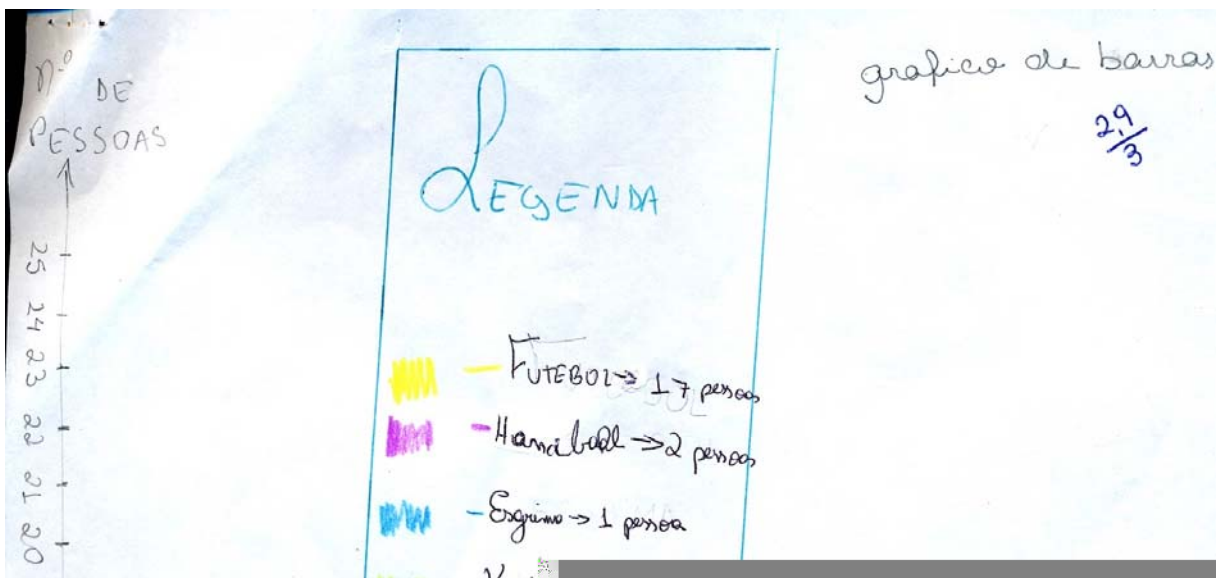 nº
DE
PESSOAS
25
24
23
22
21
20
LEGENDA
FUTEBOL → 17 pessoas
Handball → 2 pessoas
Esgrima → 1 pessoa
grafico de barras
29/3